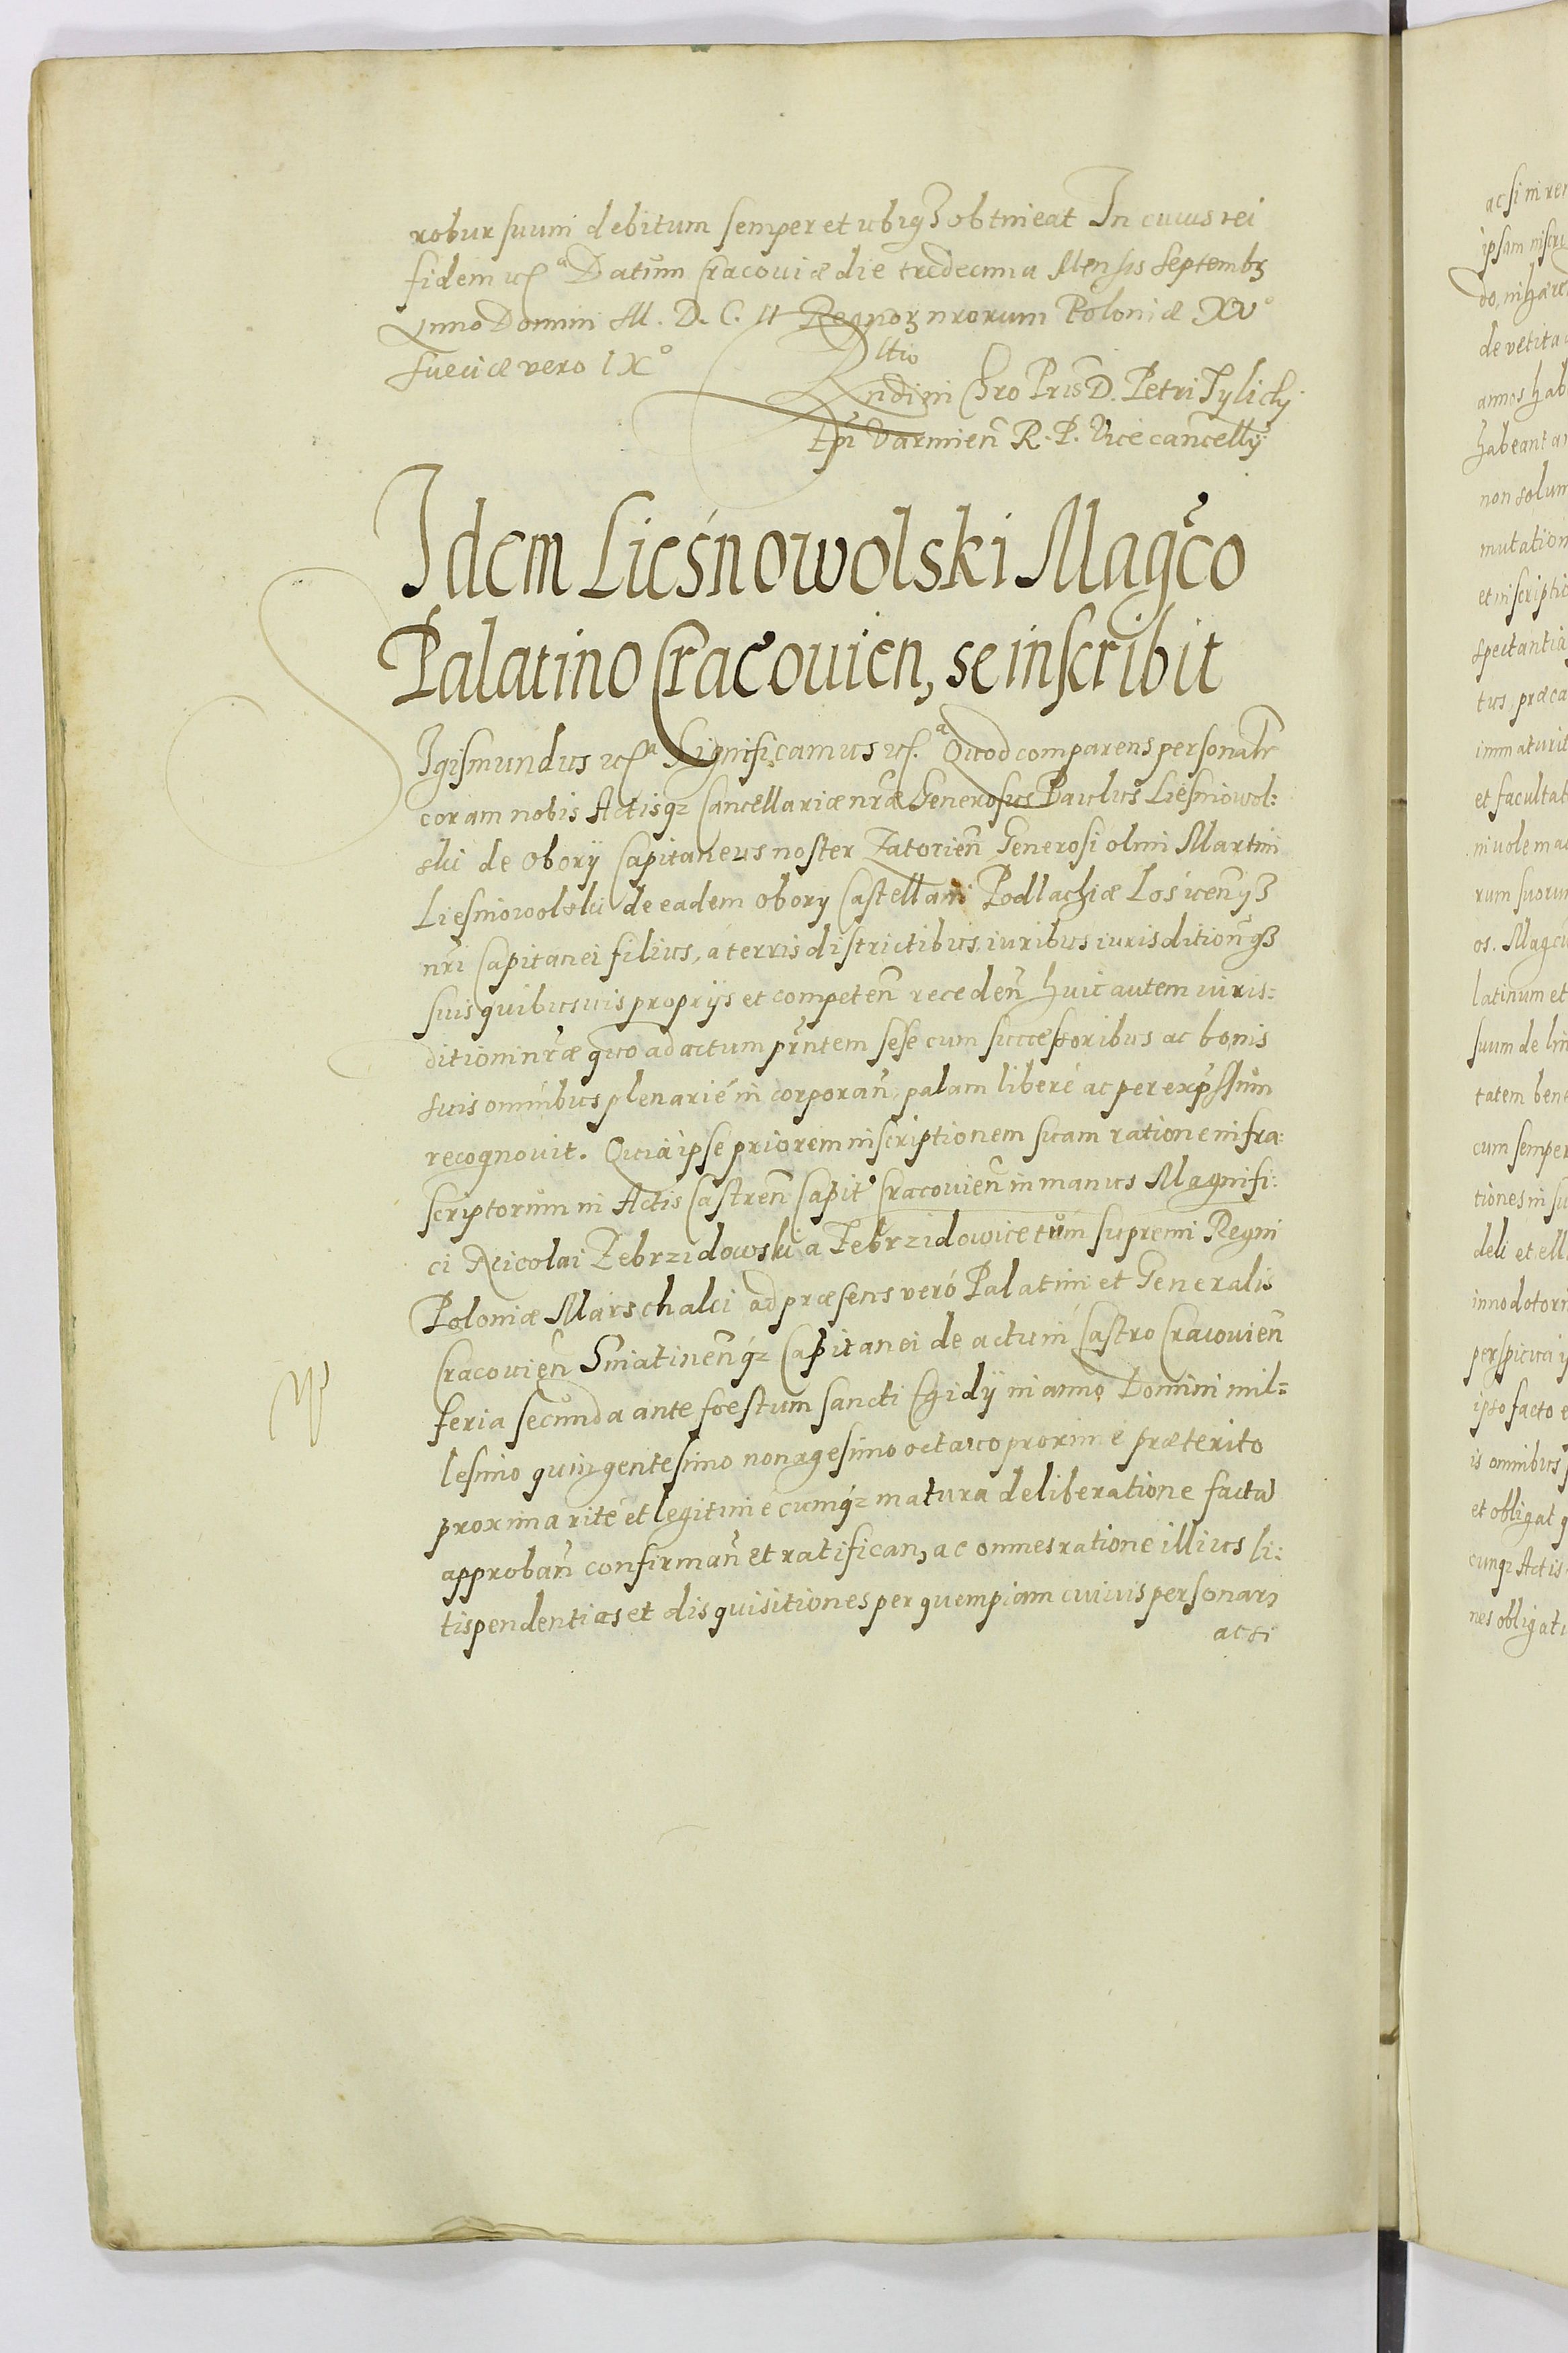 robur suum debitum semper et ubiq3 obtineat In cuius rei
fidem etc.a Datum Cracoviæ die tredecima Mensis Septemb3
Anno Domini M. D. C. II Regnor3 nrorum Poloniæ XVo
Sueciæ vero IXo
Rltio
Rndi in Chro Pris D. Petri Tylicky
Epi Varmien R. P. Vicecancelly
Idem Lieśnowolski Magco
Palatino Cracouien, se inscribit
Sigismundus etc.a Significamus etc.a Quod comparens personalr
coram nobis Actisq3 Cancellariæ nræ Generosus Paulus Liesniowol:
ski de Obory Capitaneus noster Zatorien Generosi olim Martini
Liesniowolski de eadem Obory Castellani Podlachiæ Losicen q3
nri Capitanei filius, á terris districtibus iuribus iurisdition q3
suis quibusuis proprijs et competen receden huic autem iuris:
ditioni nræ quo ad actum pntem sese cum successoribus ac bonis
suis omnibus plenarié incorporan, palam liberé ac per expssum
recognouit. Quia ipse priorem inscriptionem suam ratione infra:
scriptorum in Actis Castren Capit. Cracouien in manus Magnifi:
ci Nicolai Zebrzidowski a Zebrzidowice tum supremi Regni
Poloniæ Marschalci ad præsens veró Palatini et Generalis
Cracouien Sniatinenq3 Capitanei de actu in Castro Cracouien
feria secunda ante foestum sancti Egidij in anno Domini mil=
lesimo quingentesimo nonagesimo octauo proximé præterito
proxima rité et legitime cumq3 matura deliberatione facta
approban confirman et ratifican, ac omnes ratione illius li:
tispendentias et disquisitiones per quempiam cuiuis personar
ac si
ipsam inscri
de vetita
annos hab
habeant
non solum
mutation
et inscriptio
spectantia
tus, præca
immaturit
et facultat
rum suorum
os. Mag
latinum et
suum de
tatem bene
cum semper
tiones in su
deli et
perspicua
ipso facto e
is omnibus
et obligat
cunq3 Actis
nes obligat